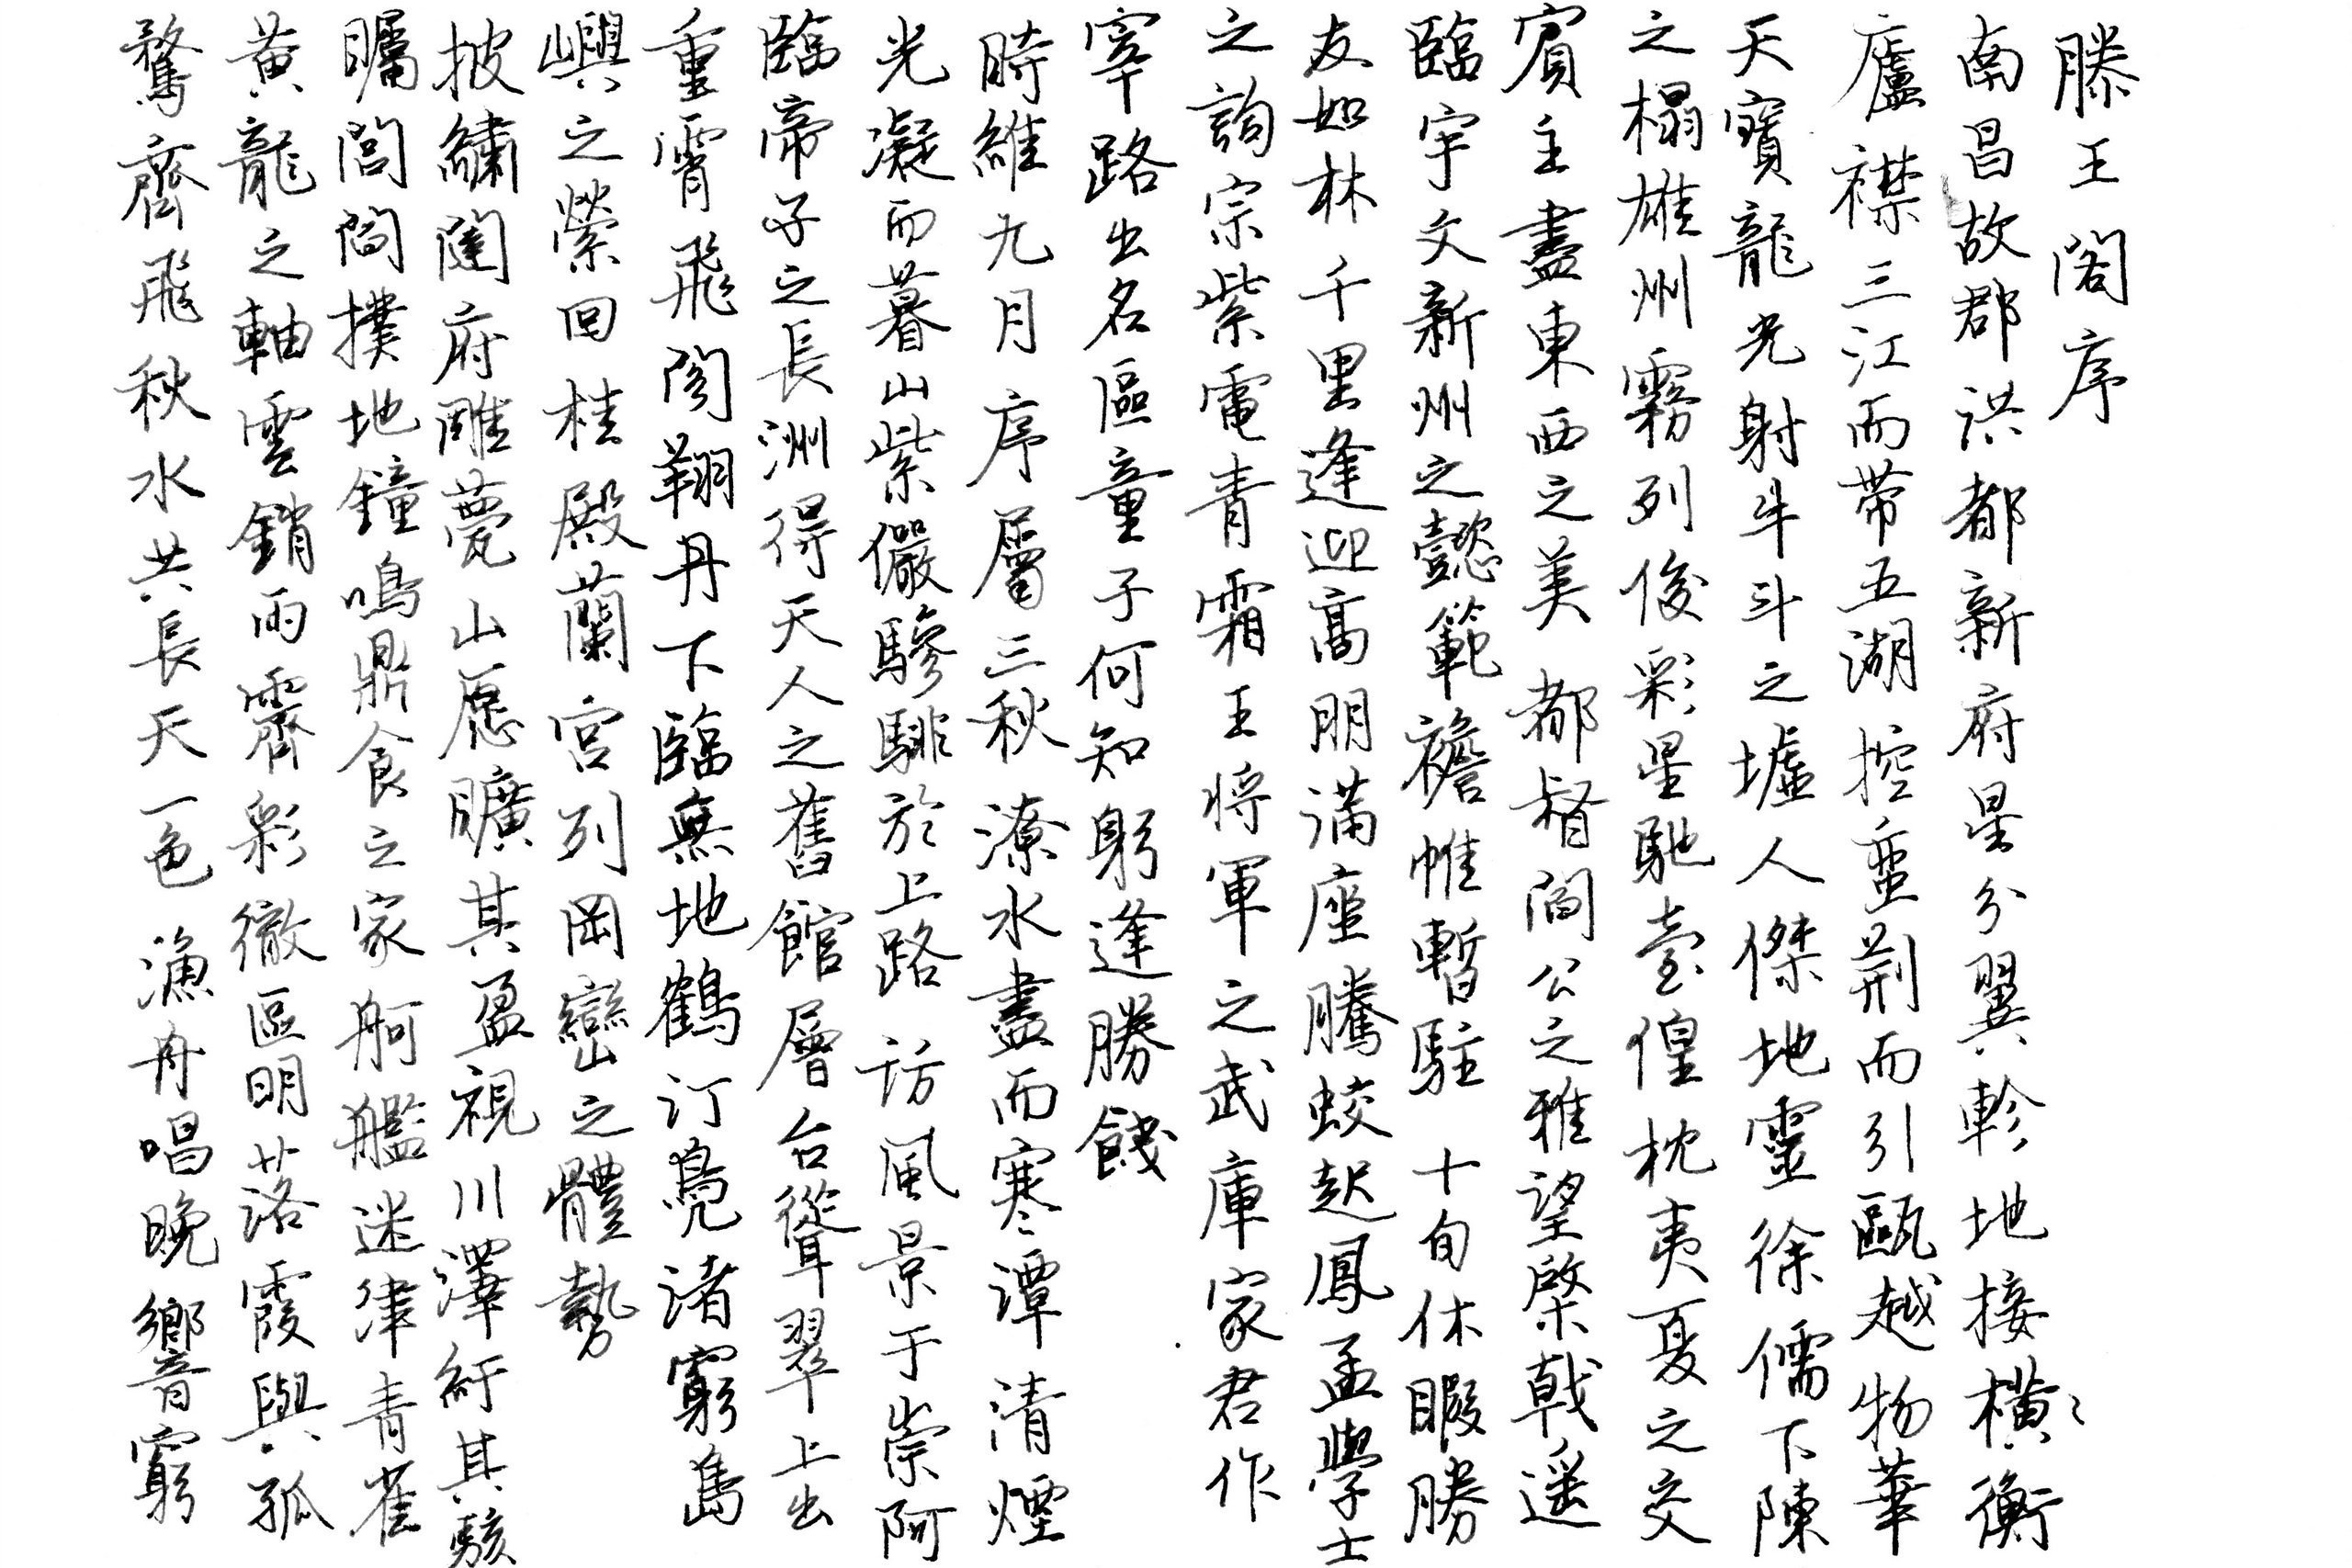 滕王閣序
南昌故郡洪都新府星分翼軫地接橫衡
廬襟三江而帶五湖控蛮荆而引甌越物華
天寶龍光射牛斗之墟人傑地靈徐儒下陳
之榻雄州霧列俊彩星馳臺隍枕夷夏之交
賓主盡東西之美都督閻公之雅望棨戟遥
臨宇文新州之懿範襜帷暫駐十旬休暇勝
友如林千里逢迎高朋滿座騰蛟起鳳孟學士
之詞宗紫電青霜王将軍之武庫家君作
宰路出名區童子何知躬逢勝餞
時維九月序屬三秋潦水盡而寒潭清煙
光凝而暮山紫儼驂騑於上路访風景于崇阿
臨帝子之長洲得天人之舊館層台聳翠上出
重霄飛閣翔丹下臨無地鶴汀鳧渚窮島
嶼之縈回桂殿蘭宮列岡巒之體勢
披繡闥府雕甍山愿曠其盈視川澤紆其駭
矚閭閻撲地鐘鳴鼎食之家舸艦迷津青雀
黄龍之軸雲銷雨霽彩徹區明落霞與孤
鶩齊飛秋水共長天一色漁舟唱晚響窮